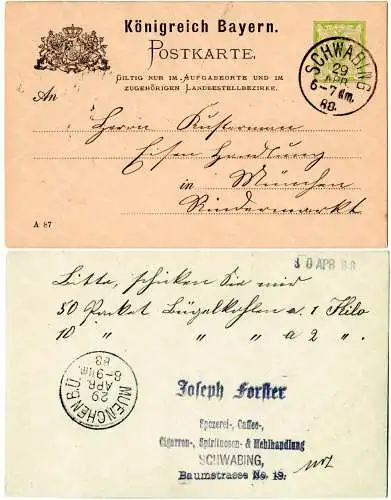 Königreich Bayern.
POSTKARTE.
GILTIG NUR IM AUFGABEORTE UND IM
ZUGEHÖRIGEN LANDBESTELLBEZIRKE.
SCHWABING
29
APR.
6-7 Nm.
88.
An
Herrn Kustermann
Eisen Handlung
in München
Rindermarkt
A 87
30 APR 88
Bitte, schicken Sie mir
50 Paket Bügelkohlen a. 1 Kilo
10 " " a 2 "
MUENCHEN B.II.
29
APR.
8-9 Nm.
88
Joseph Forster
Spezerei-, Caffee-,
Cigarren-, Spirituosen- & Mehlhandlung
SCHWABING,
Baumstrasse No 19.